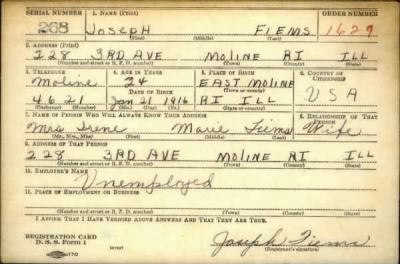 SERIAL NUMBER 1. NAME (Print) ORDER NUMBER
268 JOSEPH FIEMS 1627
(First) (Middle) (Last)
2. ADDRESS (Print)
228 3RD AVE MOLINE RI ILL
(Number and street or R. F. D. number) (Town) (County) (State)
3. TELEPHONE 4. AGE IN YEARS 5. PLACE OF BIRTH 6. COUNTRY OF CITIZENSHIP
Moline 24 EAST MOLINE
DATE OF BIRTH (Town or county) USA
4621 Jan 21 1916 RI ILL
(Exchange) (Number) (Mo.) (Day) (Yr.) (State or country)
7. NAME OF PERSON WHO WILL ALWAYS KNOW YOUR ADDRESS 8. RELATIONSHIP OF THAT PERSON
Mrs Irene Marie Fiems Wife
(Mr., Mrs., Miss) (First) (Middle) (Last)
9. ADDRESS OF THAT PERSON
228 3RD AVE MOLINE RI ILL
(Number and street or R. F. D. number) (Town) (County) (State)
10. EMPLOYER'S NAME
Unemployed
11. PLACE OF EMPLOYMENT OR BUSINESS
(Number and street or R. F. D. number) (Town) (County) (State)
I AFFIRM THAT I HAVE VERIFIED ABOVE ANSWERS AND THAT THEY ARE TRUE.
REGISTRATION CARD
D. S. S. Form 1 (over) Joseph Fiems
(Registrant's signature)